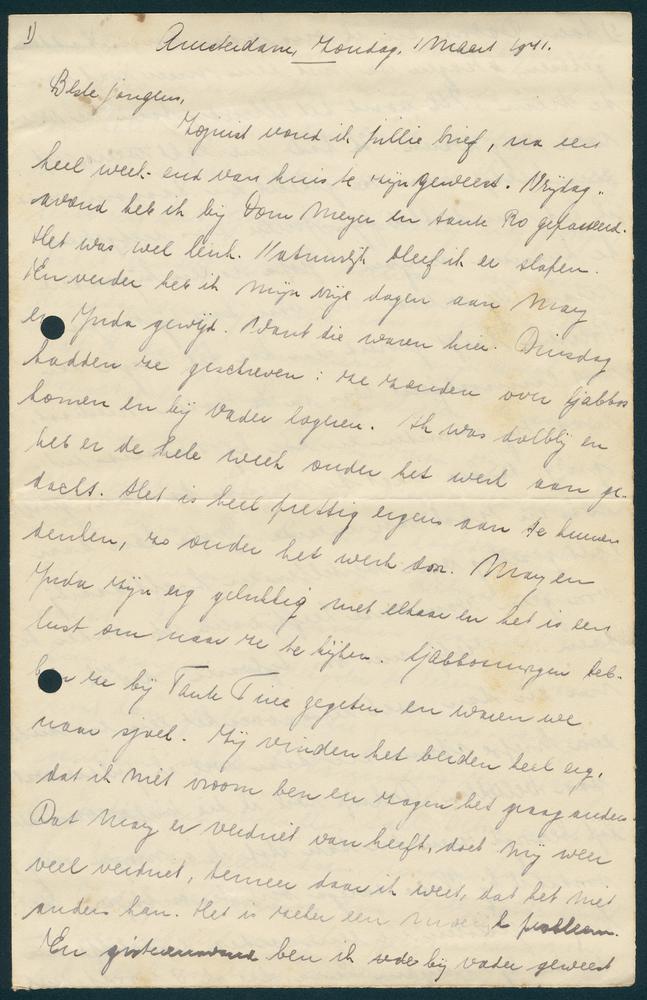 1)
Amsterdam, Zondag, 1 Maart 1941.
Beste jongens,
Zojuist vond ik jullie brief, na een
heel week-end van huis te zijn geweest. Vrijdag-
avond heb ik bij Oom Meyer en tante Ro gepasseerd.
Het was wel leuk. Natuurlijk bleef ik er slapen.
En verder heb ik mijn vrije dagen aan May
en Ynda gewijd. Want die waren hier. Dinsdag
hadden ze geschreven: ze zouden over sjabbos
komen en bij vader logeren. Ik was dolblij en
heb er de hele week onder het werk aan ge-
dacht. Het is heel prettig ergens aan te kunnen
denken, zo onder het werk door. May en
Ynda zijn erg gelukkig met elkaar en het is een
lust om naar ze te kijken. Sjabbosmorgen heb-
ben ze bij Tante Tine gegeten en waren we
naar sjoel. Zij vinden het beiden heel erg,
dat ik niet vroom ben en zagen het graag anders.
Dat May er verdriet van heeft, doet mij weer
veel verdriet, temeer daar ik weet, dat het niet
anders kan. Het is zeker een moeilijk probleem.
En ben ik bij vader geweest